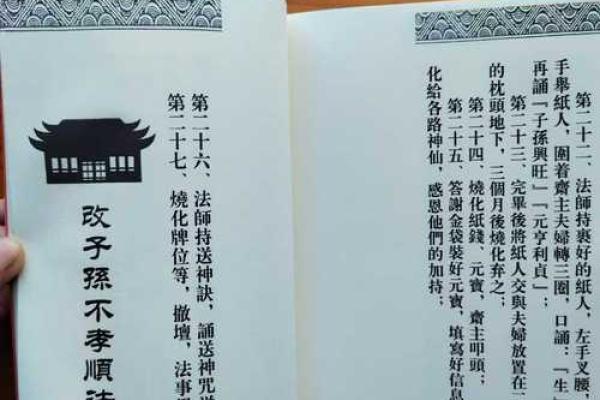 第二十二、法師持裹好的紙人，左手叉腰，
手舉紙人，圍着齋主夫婦轉三圈，口誦：『生
再誦『子孫興旺』『元亨利貞』；
第二十三、完畢後將紙人交與夫婦放置在二
的枕頭地下，三個月後燒化弃之；
第二十四、燒化紙錢、元寶，齋主叩頭；
第二十五、答謝金袋裝好元寶，填寫好信息
化給各路神仙，感恩他們的加持；
第二十六、法師持送神訣，誦送神咒
第二十七、燒化牌位等，撤壇，法事
改子孫不孝順法